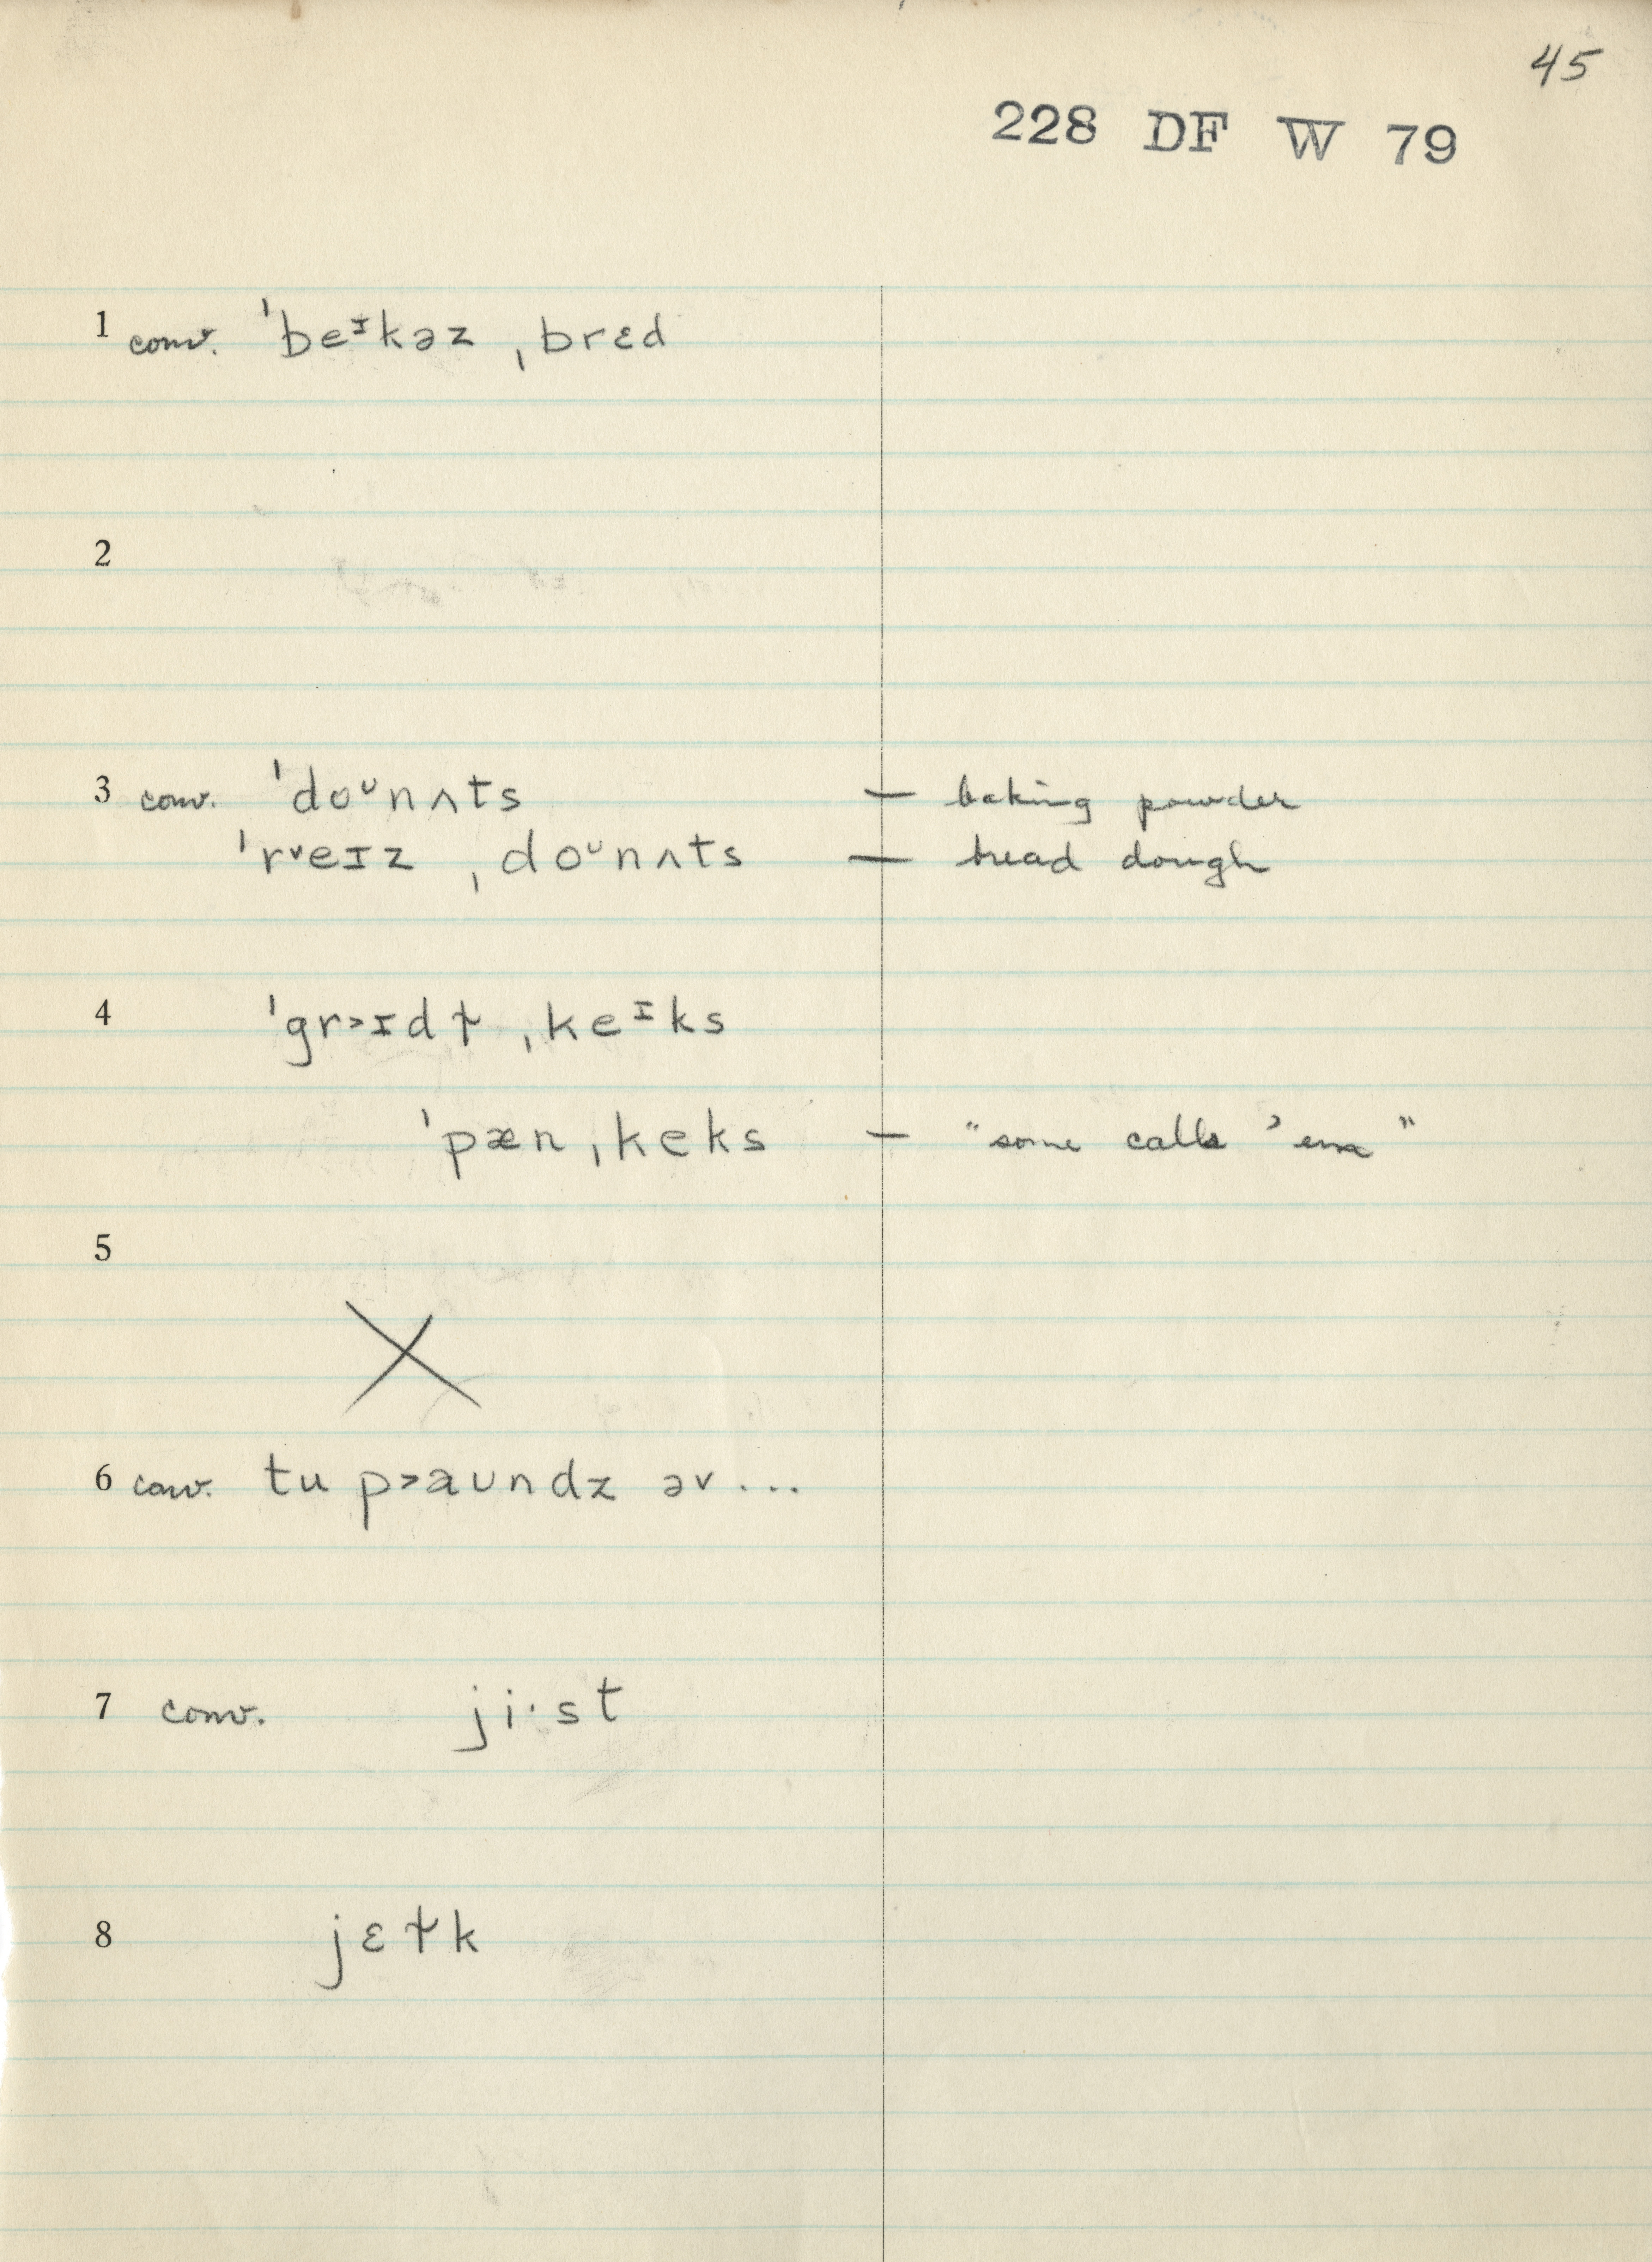 45
228 DF W 79
1 conv. ˈbeᶦkəz ˌbrɛd
2
3 conv. ˈdoᶸnʌts — baking powder
ˈr˅eɪz ˌdoᶸnʌts — bread dough
4 ˈgr˃ɪdɫ ˌkeᶦks
ˈpæn ˌkeks — "some calls 'em"
5
X
6 conv. tu p˃aʊndz əv...
7 conv. ji·st
8 jɛɫk